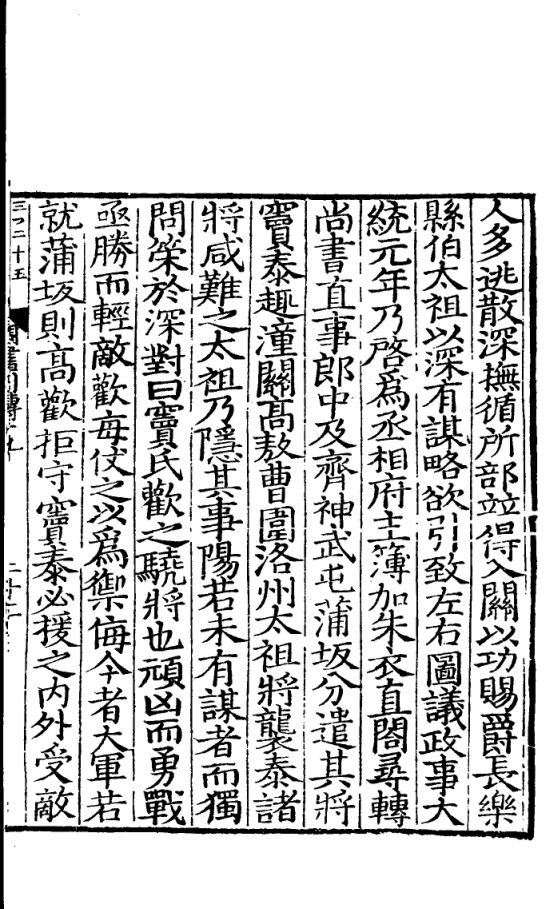 人多逃散深撫循所部並得入關以功賜爵長樂
縣伯太祖以深有謀略欲引致左右圖議政事大
統元年乃啓爲丞相府主簿加朱衣直閤尋轉
尚書直事郎中及齊神武屯蒲坂分遣其將
竇泰趣潼關高敖曹圍洛州太祖將襲泰諸
將咸難之太祖乃隱其事陽若未有謀者而獨
問策於深對曰竇氏歡之驍將也頑凶而勇戰
亟勝而輕敵歡每仗之以爲禦侮今者大軍若
就蒲坂則高歡拒守竇泰必援之内外受敵